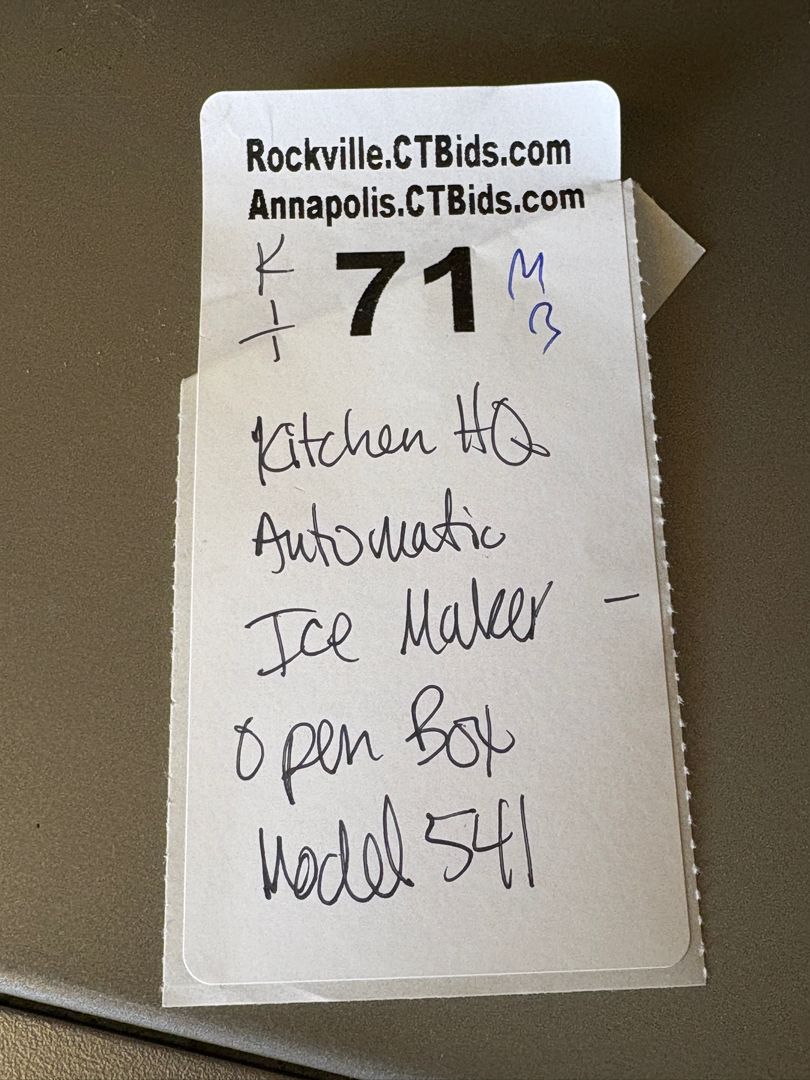 Rockville.CTBids.com
Annapolis.CTBids.com
K 71 M
B
Kitchen HQ
Automatic
Ice Maker -
Open Box
Model 541